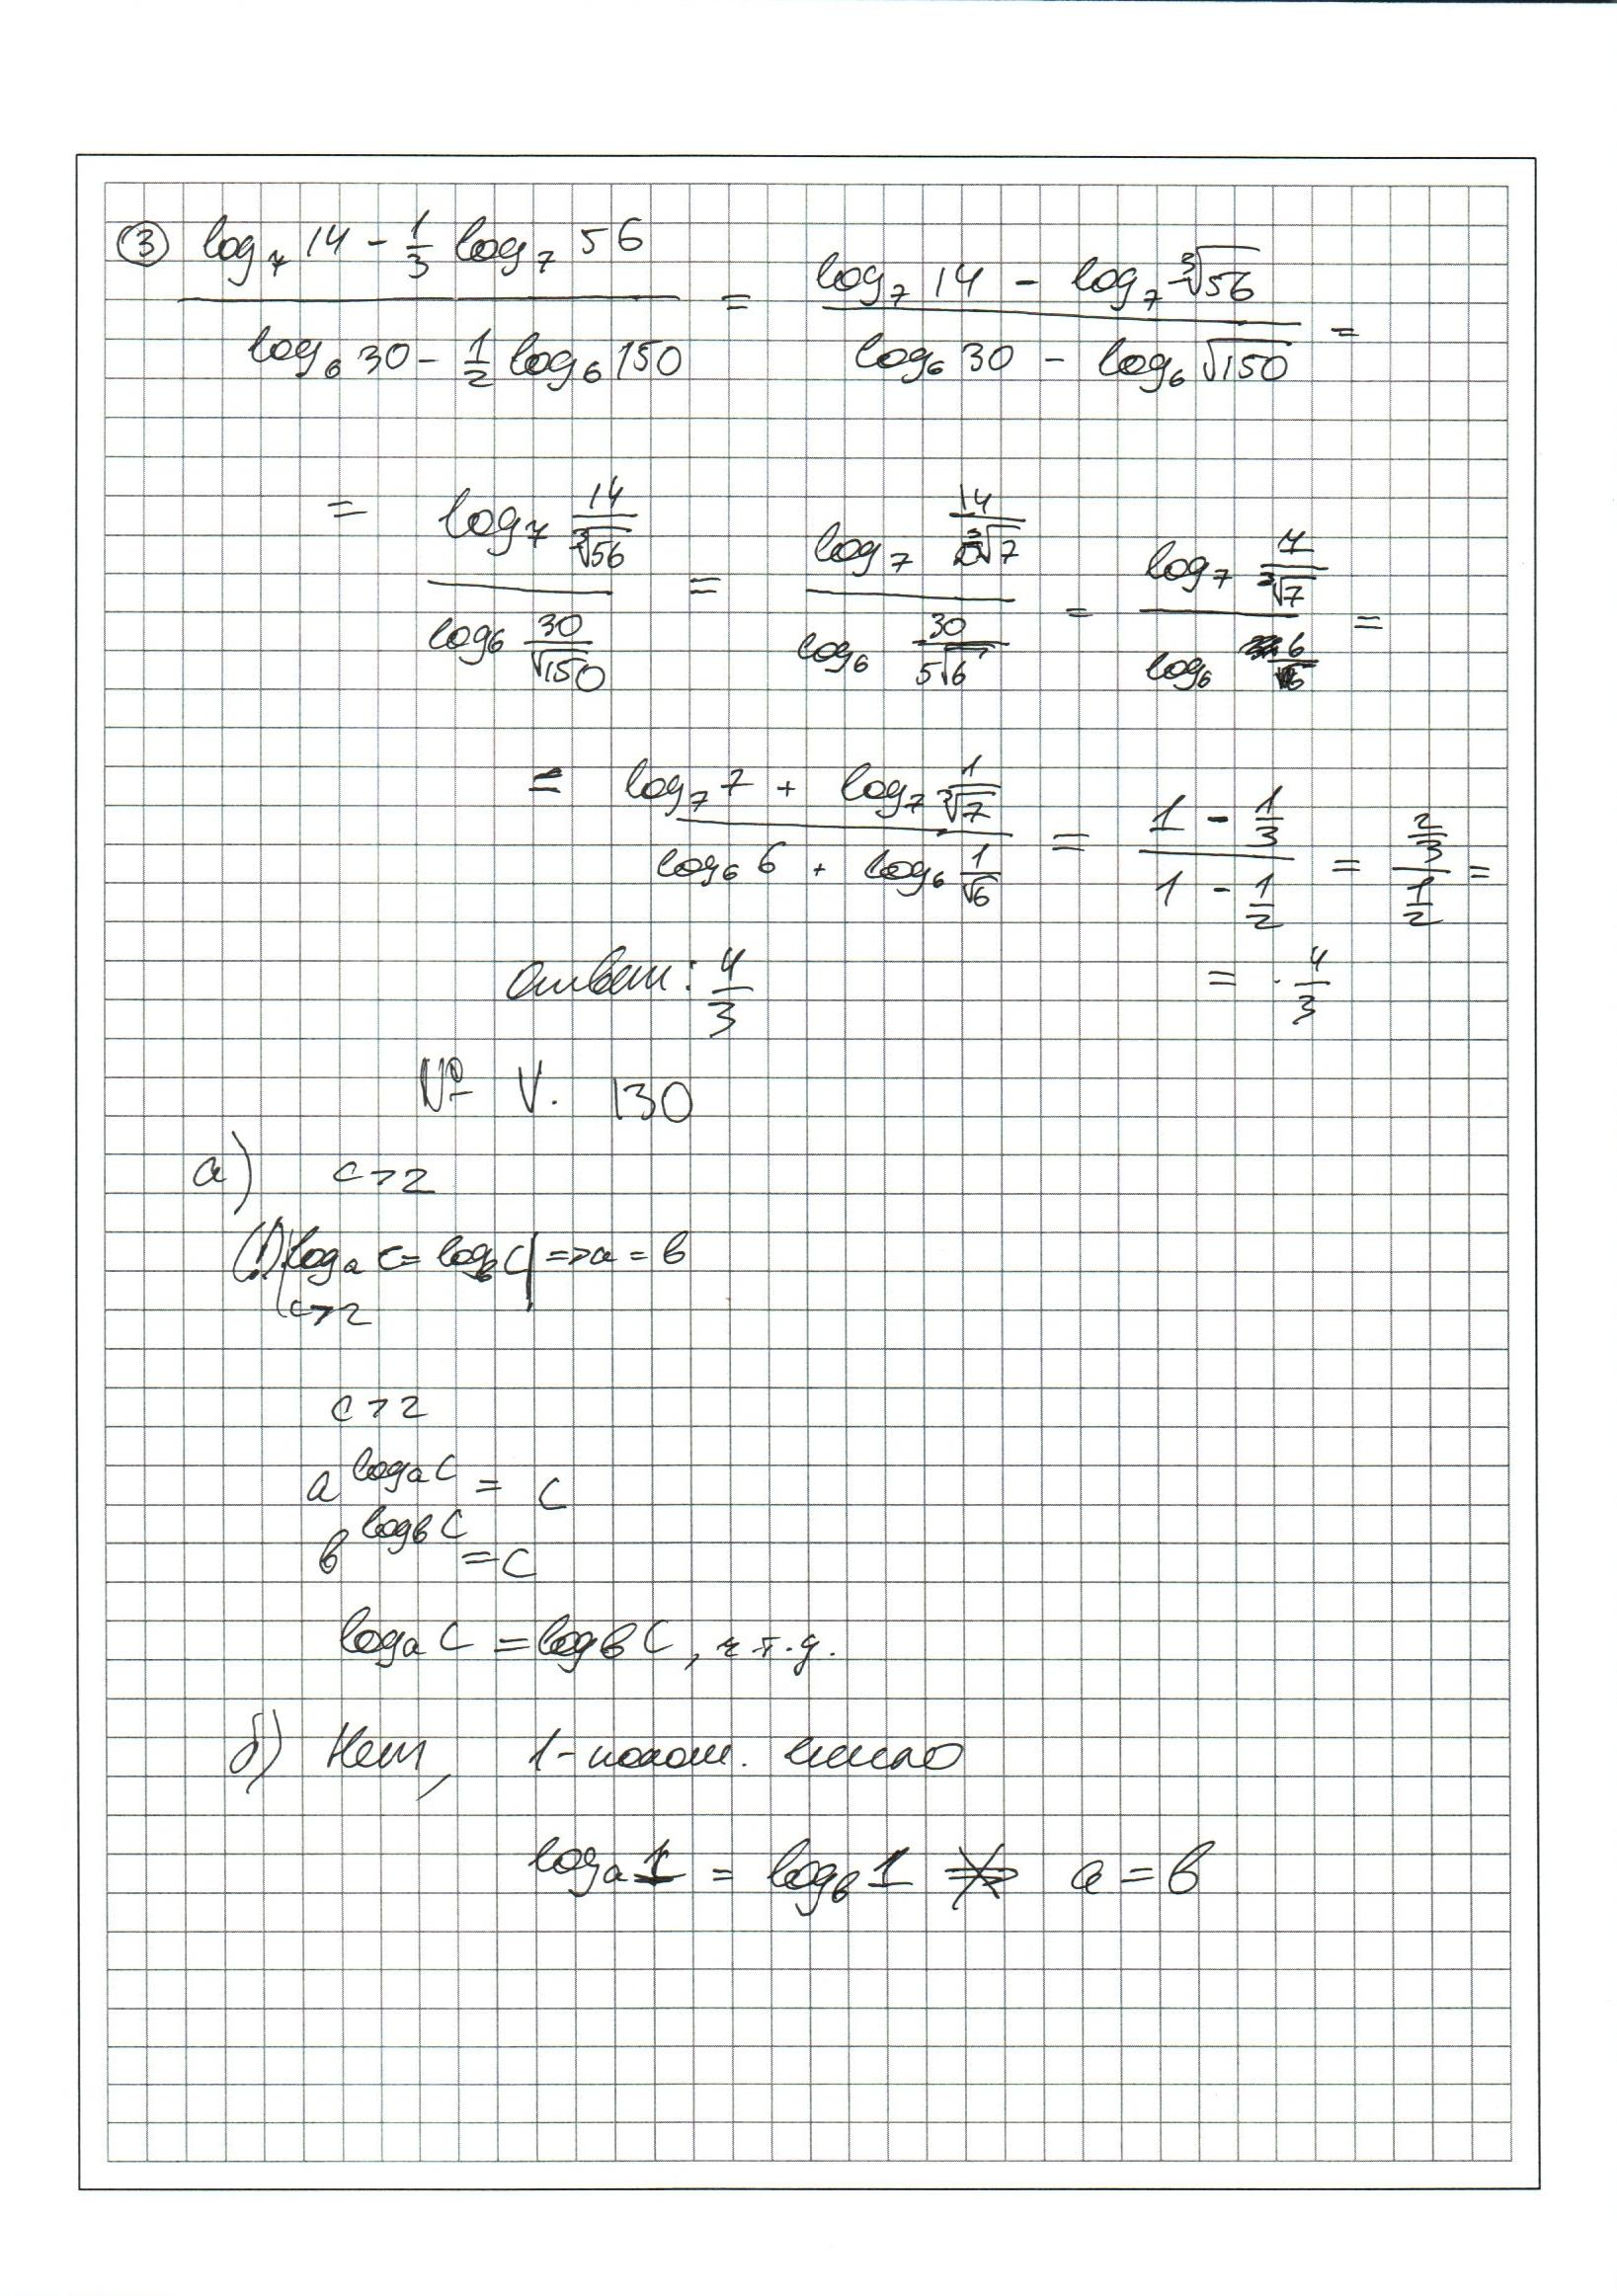 ③ (log₇ 14 - 1/3 log₇ 56) / (log₆ 30 - 1/2 log₆ 150) = (log₇ 14 - log₇ ∛56) / (log₆ 30 - log₆ √150) =
= (log₇ 14/∛56) / (log₆ 30/√150) = (log₇ 14/(2∛7)) / (log₆ 30/(5√6)) = (log₇ 7/∛7) / (log₆ 6/√6) =
= (log₇ 7 + log₇ 1/∛7) / (log₆ 6 + log₆ 1/√6) = (1 - 1/3) / (1 - 1/2) = (2/3) / (1/2) =
Ответ: 4/3 = 4/3
№ V. 130
а) c > 2
(!) logₐ c = log_b c | => a = b
c > 2
c > 2
a^(logₐ c) = c
b^(log_b c) = c
logₐ c = log_b c, ч.т.д.
б) Нет, 1 - полож. число
logₐ 1 = log_b 1 ⇏ a = b